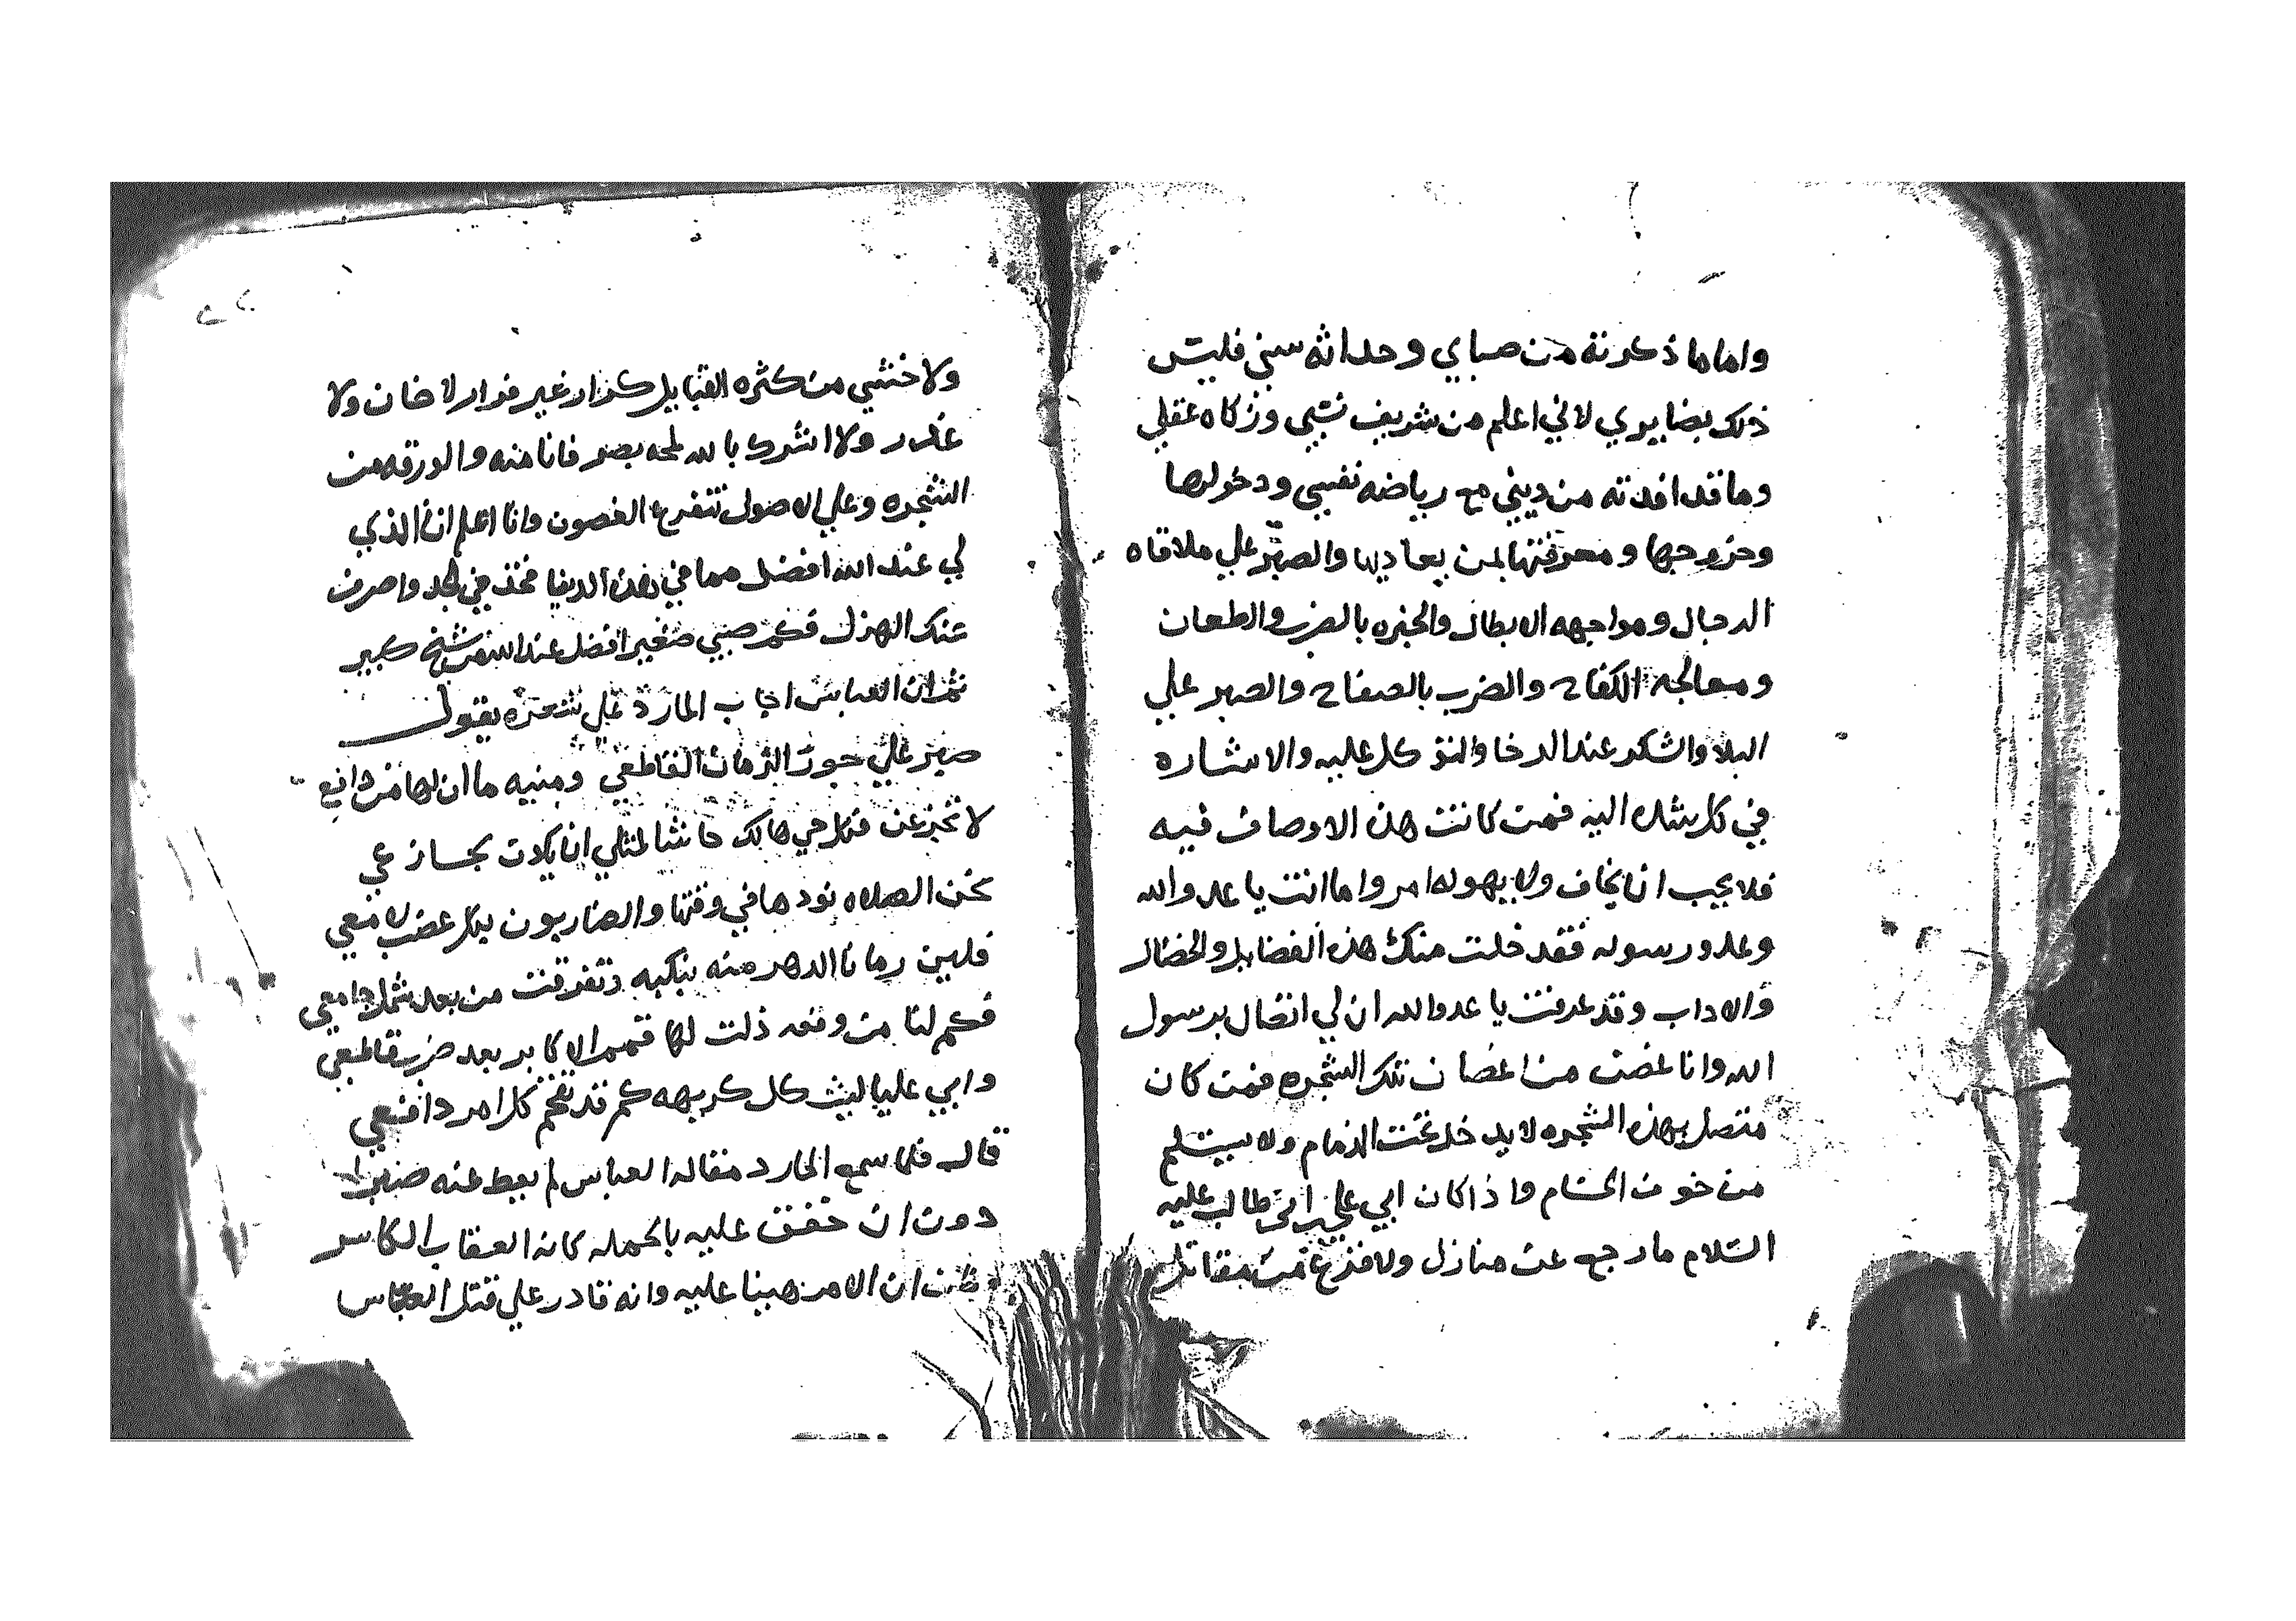 واما ما ذكرته من صباي وحداثه سني فليس
ذلك بضايري لاني اعلم من شريف نسبي وزكاه عقلي
وما قد افدته من ديني مع رياضه نفسي ودخولها
وخروجها ومعرفتها بمن يعاديها والصبر علي ملاقاه
الرجال ومواجهه الابطال والخبره بالضرب والطعان
ومعالجه الكفاح والضرب بالصفاح والصبر علي
البلا والشكر عند الرخا والتوكل عليه والاشاره
في كل شده اليه فمن كانت هذه الاوصاف فيه
فلا يجب ان يخاف ولا يهوله امر واما انت يا عدو الله
وعدو رسوله فقد خلت منك هذه الفضايل والخصال
والاداب وقد عرفت يا عدو الله ان لي اتصال برسول
الله وانا غصن من اغصان تلك الشجره فمن كان
متصل بهذه الشجره لا يدخل تحت الذمام ولا يستلم
من خوف الحسام واذا كان ابي علي ابن ابي طالب عليه
السلام ما رجع عن منازل ولا فزع من مقاتل
ولا خشي من كثره القبايل كرار غير فرار لا خان ولا
غدر ولا اشرك بالله لمحه بصر فانا منه والورقه من
الشجره وعلي الاصول تتفرع الغصون وانا اعلم ان الذي
لي عند الله افضل مما في هذه الدنيا فخذ في الجد واصرف
عنك الهزل فكم صبي صغير افضل عند الله من شيخ كبير
ثم ان العباس اجاب المارد علي شعره يقول
صبر علي جور الزمان القاطعي ومنيه ما ان لها من دافع
لا تجزعن فكل حي هالك حاشا لمثلي ان يكون بجازعي
نحن الصلاه نودها في وقتها والضاربون بكل عضب لامعي
فلين رمانا الدهر منه بنكبه وتفرقت من بعد شمل جامعي
فكم لنا من وقعه ذلت لها قمم الاكابر بعد ضرب قاطعي
وابي عليا ليث كل كريهه كم قد كل امر دافعي
قال فلما سمع المارد مقاله العباس لم يعط عنه
دون ان خفق عليه بالحمله كانه العقاب الكاسر
وظن ان الامر هينا عليه وانه قادر علي قتل العباس